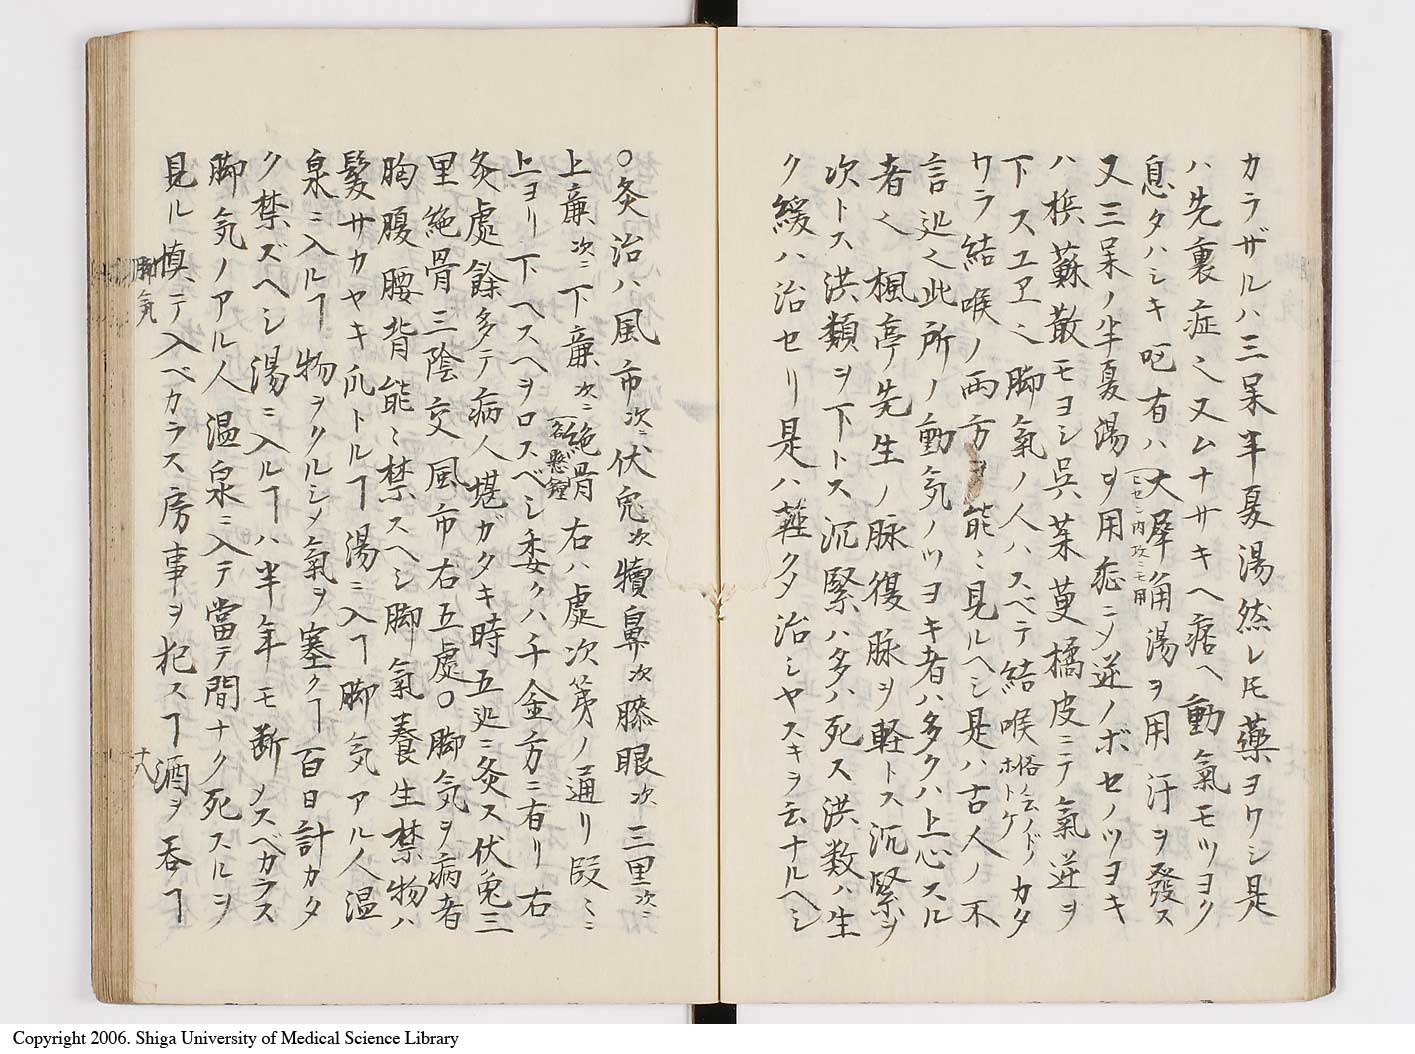 カラザルハ三呆半夏湯然レ𪜈藥ヨワシ是
ハ先裏症也又ムナサキヘ痞ヘ動氣モツヨク
息タハシキ呃有ハ大犀角湯ヲ用汗ヲ發ス
ヒゼン内攻ニモ用
又三呆ノ半夏湯ヲ用症ニ〆逆ノボセノツヨキ
ハ梹蘇散モヨシ呉茱萸橘皮ニテ氣逆ヲ
下スユヱ也脚氣ノ人ハスベテ結喉俗ノ云ノドノホトケノカタ
ワラ結喉ノ両方ヲ能〻見ルヘシ是ハ古人ノ不
言処也此所ノ動気ノツヨキ者ハ多クハ上心スル
者也楓亭先生ノ脉復脉ヲ軽トス沉緊ヲ
次トス洪類ヲ下トス沉緊ハ多ハ死ス洪数ハ生
ク緩ハ治セリ是ハ軽ク〆治シヤスキヲ云ナルヘシ
○灸治ハ風市次ニ伏兔次犢鼻次膝眼次三里次ニ
上廉次ニ下廉次ニ絶骨右ハ處次第ノ通リ段〻ニ
一名懸鐘
上ヨリ下ヘスヘヲロスベシ委クハ千金方ニ有リ右
灸處餘多テ病人堪ガタキ時五処ニ灸ス伏兔三
里絶骨三陰交風市右五處○脚気ヲ病者
胸腹腰背能〻禁スヘシ脚氣養生禁物ハ
髪サカヤキ爪トルヿ湯ニ入ヿ脚気アル人温
泉ニ入ルヿ物ヲクルシメ氣ヲ塞クヿ百日計カタ
ク禁ズヘシ湯ニ入ルヿハ半年モ断メスベカラス
脚気ノアル人温泉ニ入テ當テ間ナク死スルヲ
見ル慎テ入ベカラス房事ヲ犯スヿ酒ヲ呑ヿ
脚気
十八
Copyright 2006. Shiga University of Medical Science Library